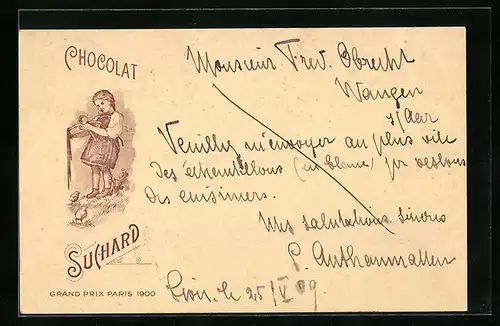 CHOCOLAT
SUCHARD
GRAND PRIX PARIS 1900
Monsieur Fred. Obrecht
Wangen
s/Aar
Veuillez m'envoyer au plus vite
des échantillons (en blanc) pr vestons
des cuisiniers.
Mes salutations sincères
le 25/V 09